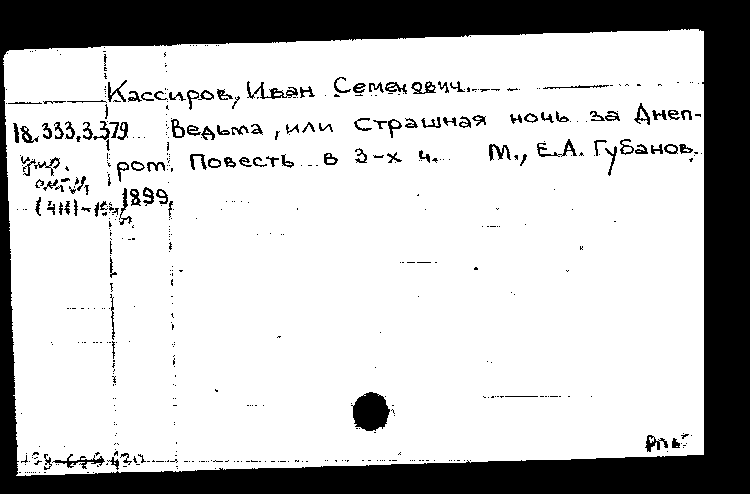 Кассиров, Иван Семенович.
18.333.3.379 Ведьма, или Страшная ночь за Днеп-
утр. ром. Повесть в 3-х ч. М., Е.А. Губанов.
1899.